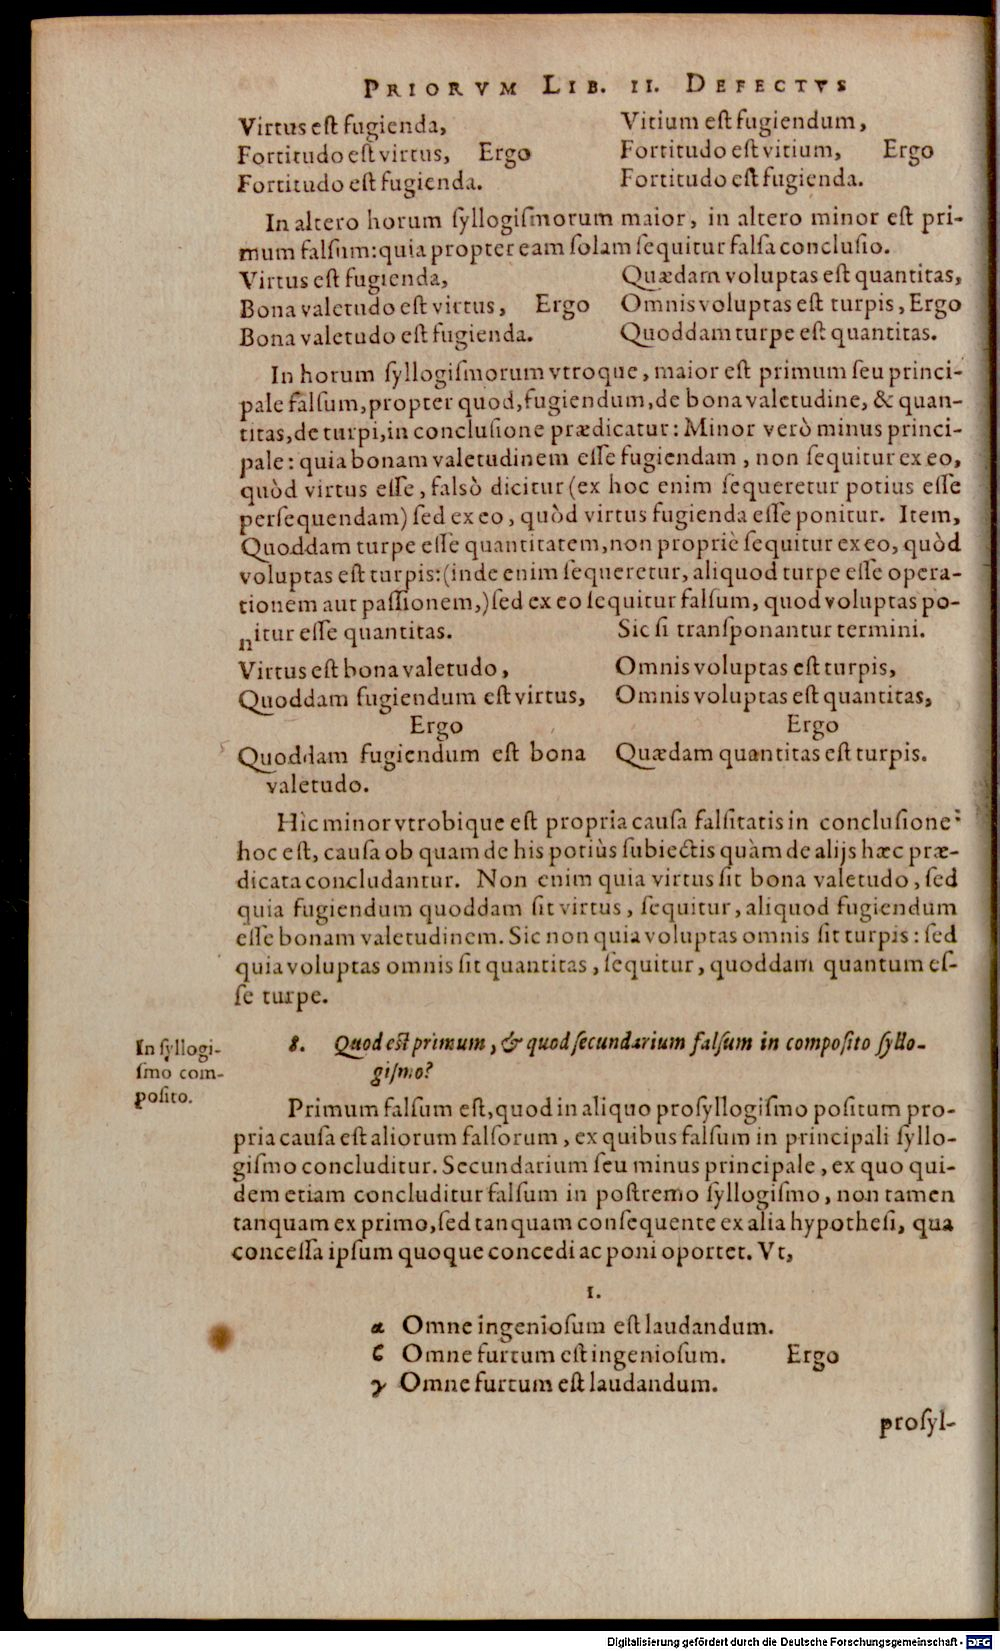 PRIORVM LIB. II. DEFECTVS
Virtus eſt fugienda,
Fortitudo eſt virtus, Ergo
Fortitudo eſt fugienda.
Vitium eſt fugiendum,
Fortitudo eſt vitium, Ergo
Fortitudo eſt fugienda.
In altero horum ſyllogiſmorum maior, in altero minor eſt pri-
mum falſum: quia propter eam ſolam ſequitur falſa concluſio.
Virtus eſt fugienda,
Bona valetudo eſt virtus, Ergo
Bona valetudo eſt fugienda.
Quædam voluptas eſt quantitas,
Omnis voluptas eſt turpis, Ergo
Quoddam turpe eſt quantitas.
In horum ſyllogiſmorum vtroque, maior eſt primum ſeu princi-
pale falſum, propter quod, fugiendum, de bona valetudine, & quan-
titas, de turpi, in concluſione prædicatur: Minor verò minus princi-
pale: quia bonam valetudinem eſſe fugiendam, non ſequitur ex eo,
quòd virtus eſſe, falsò dicitur (ex hoc enim ſequeretur potius eſſe
perſequendam) ſed ex eo, quòd virtus fugienda eſſe ponitur. Item,
Quoddam turpe eſſe quantitatem, non propriè ſequitur ex eo, quòd
voluptas eſt turpis: (inde enim ſequeretur, aliquod turpe eſſe opera-
tionem aut paſſionem,) ſed ex eo ſequitur falſum, quod voluptas po-
nitur eſſe quantitas. Sic ſi tranſponantur termini.
Virtus eſt bona valetudo,
Quoddam fugiendum eſt virtus,
Ergo
Quoddam fugiendum eſt bona
valetudo.
Omnis voluptas eſt turpis,
Omnis voluptas eſt quantitas,
Ergo
Quædam quantitas eſt turpis.
Hìc minor vtrobique eſt propria cauſa falſitatis in concluſione:
hoc eſt, cauſa ob quam de his potiùs ſubiectis quàm de alijs hæc præ-
dicata concludantur. Non enim quia virtus ſit bona valetudo, ſed
quia fugiendum quoddam ſit virtus, ſequitur, aliquod fugiendum
eſſe bonam valetudinem. Sic non quia voluptas omnis ſit turpis: ſed
quia voluptas omnis ſit quantitas, ſequitur, quoddam quantum eſ-
ſe turpe.
In ſyllogi-
ſmo com-
poſito.
8. Quod eſt primum, & quod ſecundarium falſum in compoſito ſyllo-
giſmo?
Primum falſum eſt, quod in aliquo proſyllogiſmo poſitum pro-
pria cauſa eſt aliorum falſorum, ex quibus falſum in principali ſyllo-
giſmo concluditur. Secundarium ſeu minus principale, ex quo qui-
dem etiam concluditur falſum in poſtremo ſyllogiſmo, non tamen
tanquam ex primo, ſed tanquam conſequente ex alia hypotheſi, qua
conceſſa ipſum quoque concedi ac poni oportet. Vt,
I.
α Omne ingenioſum eſt laudandum.
ϐ Omne furtum eſt ingenioſum. Ergo
γ Omne furtum eſt laudandum.
proſyl-
Digitalisierung gefördert durch die Deutsche Forschungsgemeinschaft - DFG